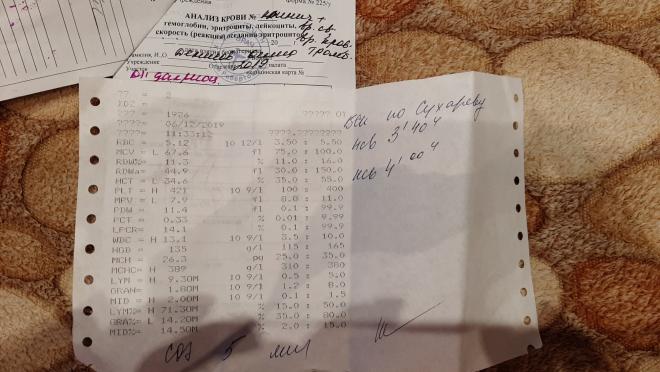 учреждения
форма № 225/у
АНАЛИЗ КРОВИ №
гемоглобин, эритроциты, лейкоциты,
скорость (реакция) оседания эритроцитов
2019
?? = 2
ID2 =
??? = 1926
????= 06/12/2019
????= 11:33:12 ????.????????
RBC = 5.12 10 12/l 3.50 : 5.50
MCV = L 67.6 fl 75.0 : 100.0
RDW%= 11.3 % 11.0 : 16.0
RDWa= 44.9 fl 30.0 : 150.0
HCT = L 34.6 % 35.0 : 55.0
PLT = H 421 10 9/l 100 : 400
MPV = L 7.9 fl 8.0 : 11.0
PDW = 11.4 fl 0.1 : 99.9
PCT = 0.33 % 0.01 : 9.99
LPCR= 14.1 % 0.1 : 99.9
WBC = H 13.1 10 9/l 3.5 : 10.0
HGB = 135 g/l 115 : 165
MCH = 26.3 pg 25.0 : 35.0
MCHC= H 389 g/l 310 : 380
LYM = H 9.30M 10 9/l 0.5 : 5.0
GRAN= 1.80M 10 9/l 1.2 : 8.0
MID = H 2.00M 10 9/l 0.1 : 1.5
LYM%= H 71.30M % 15.0 : 50.0
GRA%= L 14.20M % 35.0 : 80.0
MID%= 14.50M % 2.0 : 15.0
СОЭ 5 мм/
по Сухареву
3' 40"
4' 00"